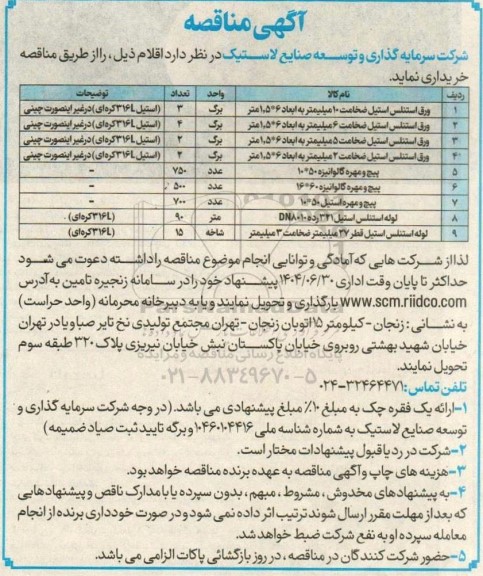 آگهی مناقصه
شرکت سرمایه گذاری و توسعه صنایع لاستیک در نظر دارد اقلام ذیل ، را از طریق مناقصه
خریداری نماید.
ردیف نام کالا واحد تعداد توضیحات
۱ ورق استنلس استیل ضخامت ۱۰ میلیمتر به ابعاد ۶*۱٫۵ متر برگ ۳ (استیل ۳۱۶L کره‌ای) در غیر اینصورت چینی
۲ ورق استنلس استیل ضخامت ۶ میلیمتر به ابعاد ۶*۱٫۵ متر برگ ۴ (استیل ۳۱۶L کره‌ای) در غیر اینصورت چینی
۳ ورق استنلس استیل ضخامت ۵ میلیمتر به ابعاد ۶*۱٫۵ متر برگ ۲ (استیل ۳۱۶L کره‌ای) در غیر اینصورت چینی
۴ ورق استنلس استیل ضخامت ۲ میلیمتر به ابعاد ۶*۱٫۵ متر برگ ۲ (استیل ۳۱۶L کره‌ای) در غیر اینصورت چینی
۵ پیچ و مهره گالوانیزه ۵۰*۱۰ عدد ۷۵۰ -
۶ پیچ و مهره گالوانیزه ۶۰*۱۶ عدد ۵۰۰ -
۷ پیچ و مهره استیل ۵۰*۱۰ عدد ۷۰۰ -
۸ لوله استنلس استیل ۳۲۱ رده ۱۰ DN۸۰ متر ۹۰ (۳۱۶L کره‌ای) .
۹ لوله استنلس استیل قطر ۲۷ میلیمتر ضخامت ۳ میلیمتر شاخه ۱۵ (۳۱۶L کره‌ای)
لذا از شرکت هایی که آمادگی و توانایی انجام موضوع مناقصه را داشته دعوت می شود
حداکثر تا پایان وقت اداری ۱۴۰۴/۰۶/۳۰ پیشنهاد خود را در سامانه زنجیره تامین به آدرس
www.scm.riidco.com بارگذاری و تحویل نمایند و یا به دبیرخانه محرمانه (واحد حراست)
به نشانی : زنجان - کیلومتر ۱۵ اتوبان زنجان - تهران مجتمع تولیدی نخ تایر صبا و یا در تهران
خیابان شهید بهشتی روبروی خیابان پاکستان نبش خیابان نی‌ریزی پلاک ۳۲۰ طبقه سوم
تحویل نمایند.
پایگاه اطلاع رسانی مناقصه و مزایده
۰۲۱-۸۸۳۴۹۶۷۰-۵
تلفن تماس: ۳۲۴۶۴۴۷۱-۰۲۴
۱-ارائه یک فقره چک به مبلغ ۱۰٪ مبلغ پیشنهادی می باشد. (در وجه شرکت سرمایه گذاری و
توسعه صنایع لاستیک به شماره شناسه ملی ۱۰۴۶۰۱۰۴۴۱۶ و برگه تایید ثبت صیاد ضمیمه)
۲-شرکت در رد یا قبول پیشنهادات مختار است.
۳-هزینه های چاپ و آگهی مناقصه به عهده برنده مناقصه خواهد بود.
۴-به پیشنهادهای مخدوش ، مشروط ، مبهم ، بدون سپرده یا با مدارک ناقص و پیشنهادهایی
که بعد از مهلت مقرر ارسال شوند ترتیب اثر داده نمی شود و در صورت خودداری برنده از انجام
معامله سپرده او به نفع شرکت ضبط خواهد شد.
۵-حضور شرکت کنندگان در مناقصه ، در روز بازگشائی پاکات الزامی می باشد.